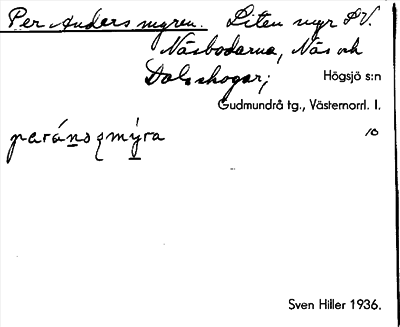 Per Anders myren. Liten myr SV.
Näsbodarna, Näs och
Dalsskogar; Högsjö s:n
Gudmundrå tg., Västernorrl. l.
paránsmýra 10
Sven Hiller 1936.